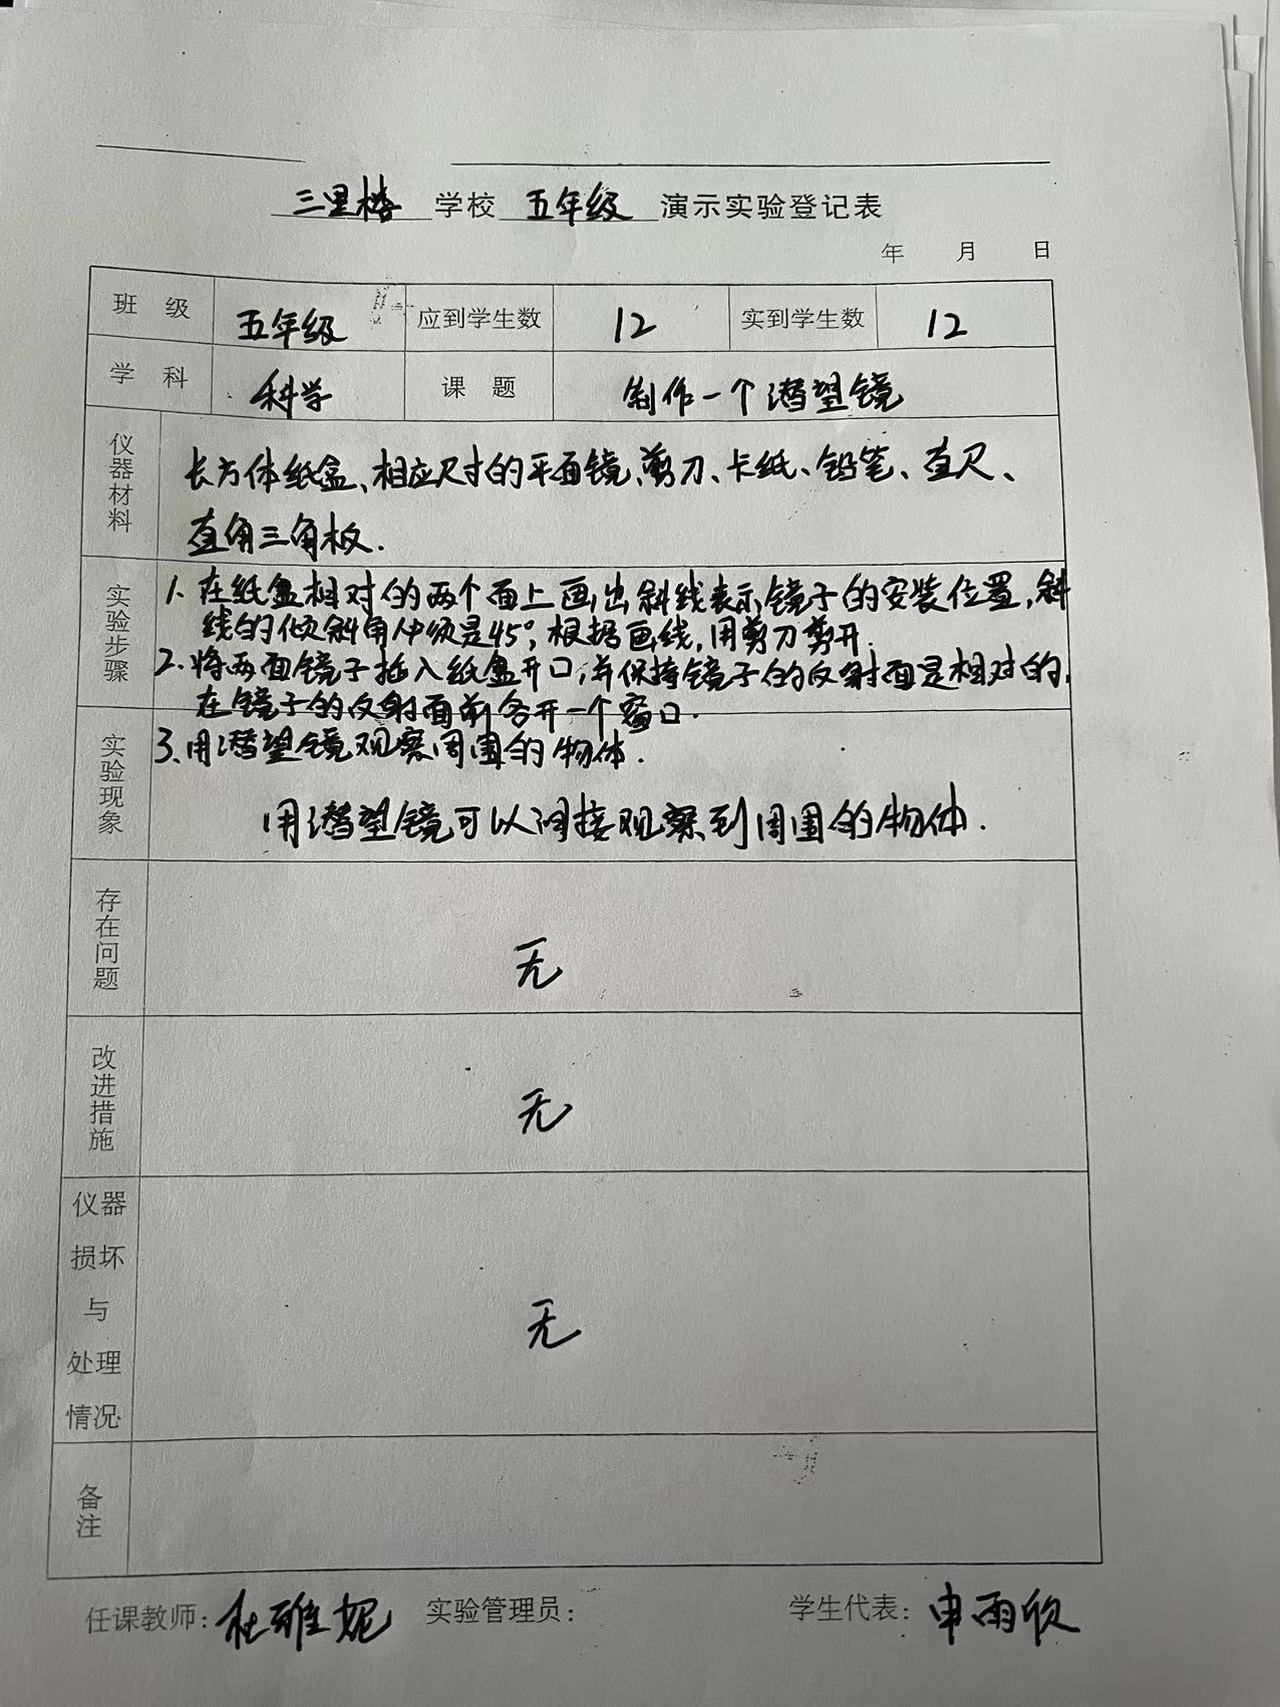 三里楼 学校 五年级 演示实验登记表
年 月 日
班 级 五年级 应到学生数 12 实到学生数 12
学 科 科学 课 题 制作一个潜望镜
仪器材料 长方体纸盒、相应尺寸的平面镜、剪刀、卡纸、铅笔、直尺、
直角三角板.
实验步骤 1. 在纸盒相对的两个面上画出斜线表示镜子的安装位置,斜
线的倾斜角必须是45°,根据画线,用剪刀剪开.
2. 将两面镜子插入纸盒开口,并保持镜子的反射面是相对的,
在镜子的反射面前各开一个窗口.
3、用潜望镜观察周围的物体.
实验现象 用潜望镜可以间接观察到周围的物体.
存在问题 无
改进措施 无
仪器
损坏
与 无
处理
情况
备注
任课教师: 杜雅妮 实验管理员: 学生代表: 申雨欣